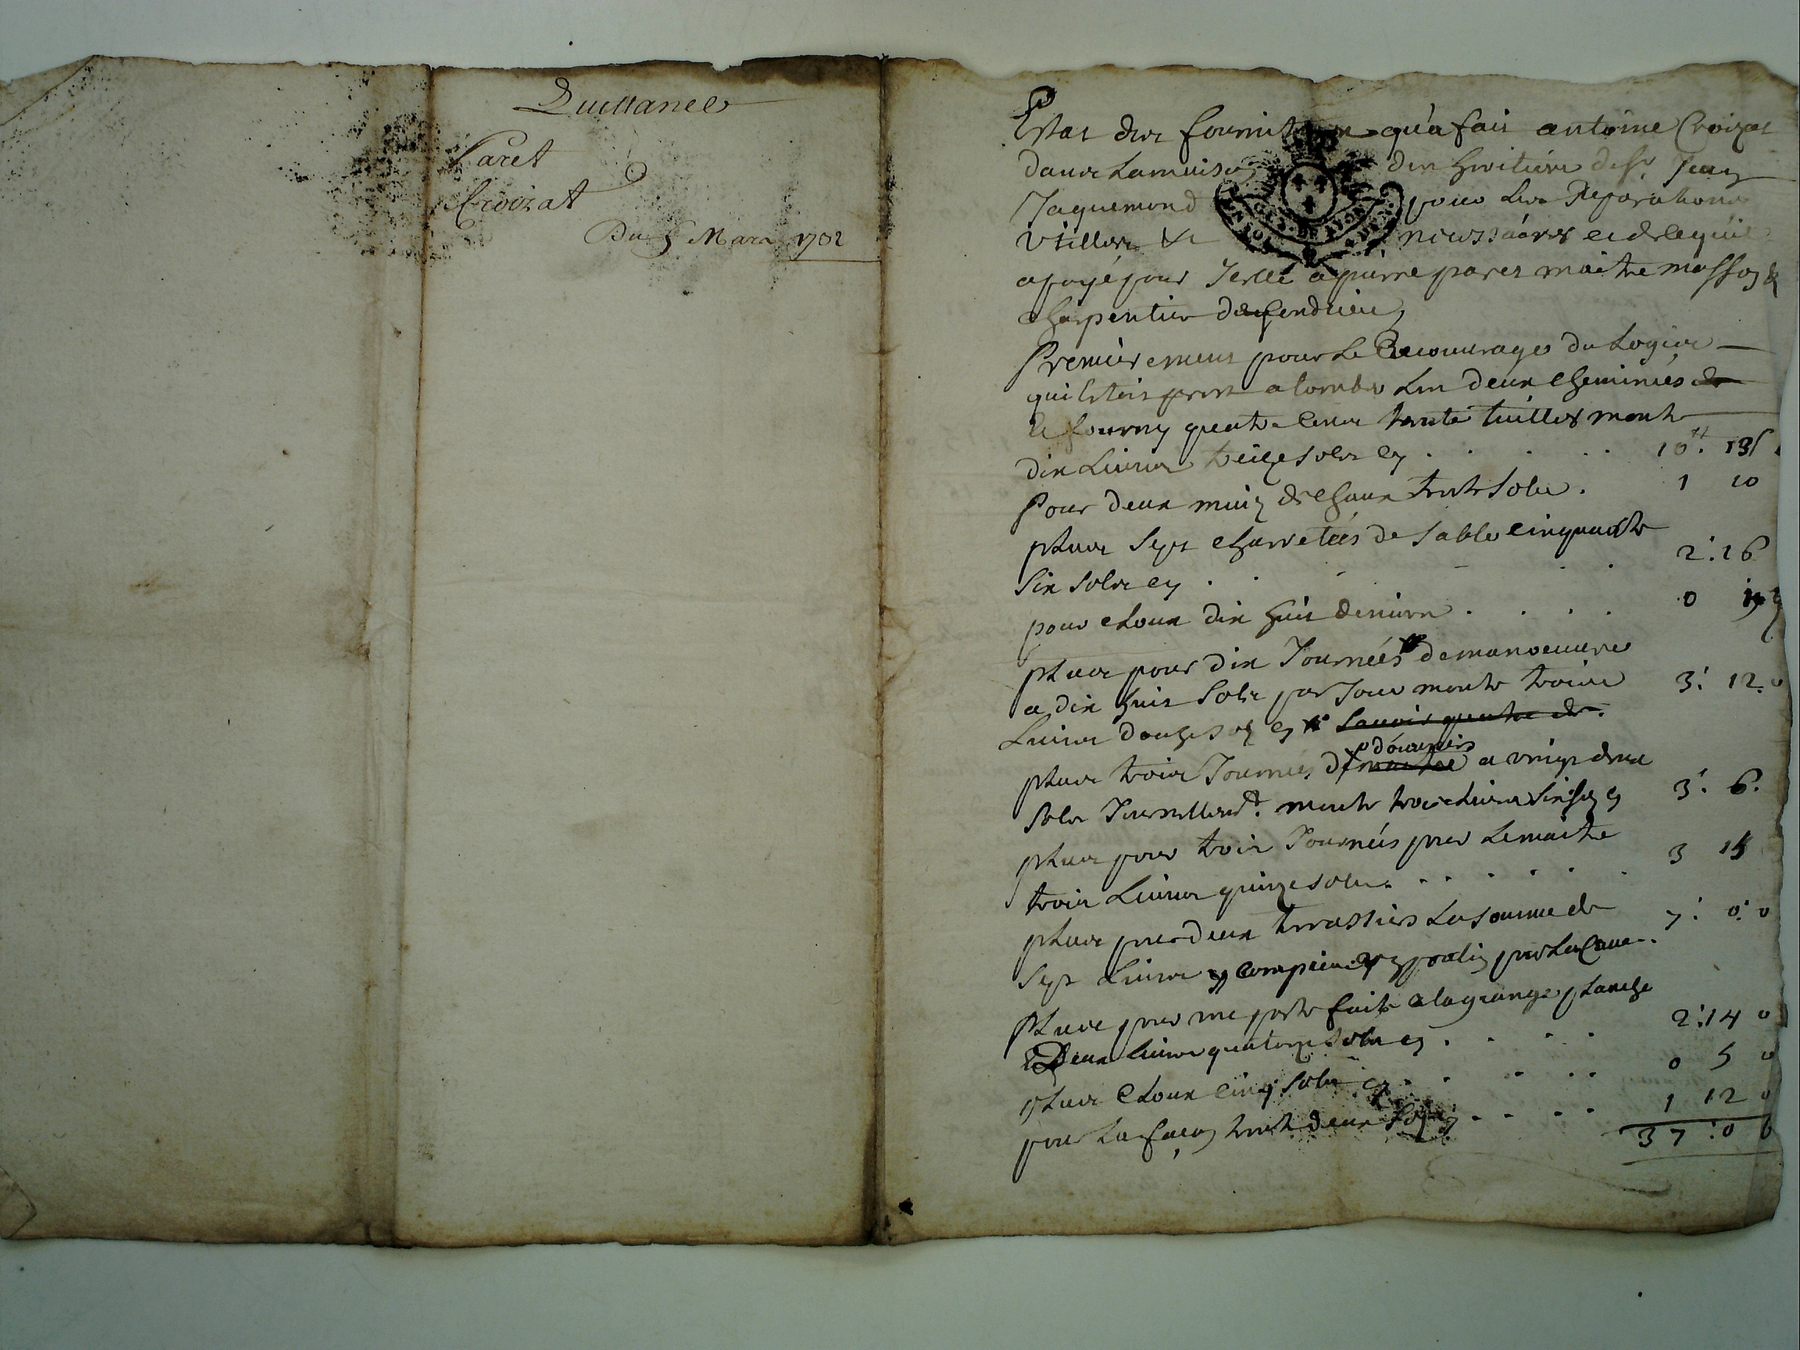 Quittance
Paret
Croizat
Du 5 Mars 1702
Estat des fournit qu'a fait antoine Croizat
dans la maison des heritiers de Sr. Jean
Jaquemond pour les Reparations
Utilles & necessaires et de ce quil
a payé pour Icelle a pierre paret maitre masson &
charpentier de
Premierement pour le Recouvrage du Logis
quil etoit prest a tomber deux cheminées
fourny quatre cens trente tuilles monte
dix Livres treize sols cy . . . . 10tt. 13s
Pour deux muiz de chaux trente sols . 1 10
plus sept charretées de sable cinquante
six sols cy . . . . 2 : 16
pour cloux dix huit deniers . . . . 0 1
plus pour dix Journées de manoeuvre
a dix huit sols par Jour monte trois
Livres douze sols cy 3 : 12 . 0
d'ouvriers
plus trois Journées de maitre a vingt deux
sols Journellemt. monte trois Livres six sols cy 3 : 6 .
plus pour trois Journées pour le maitre
trois Livres quinze sols . . . . . . 3 15
plus pour deux terrassiers la somme de
sept Livres 7 : 0 : 0
plus pour une porte faite a la grange planche
Deux Livres quatorze sols cy . . . . 2 : 14 0
plus cloux cinq sols cy . . . . . 0 5 0
pour la façon trente deux sols cy . . . . 1 12 0
37 : 0 6